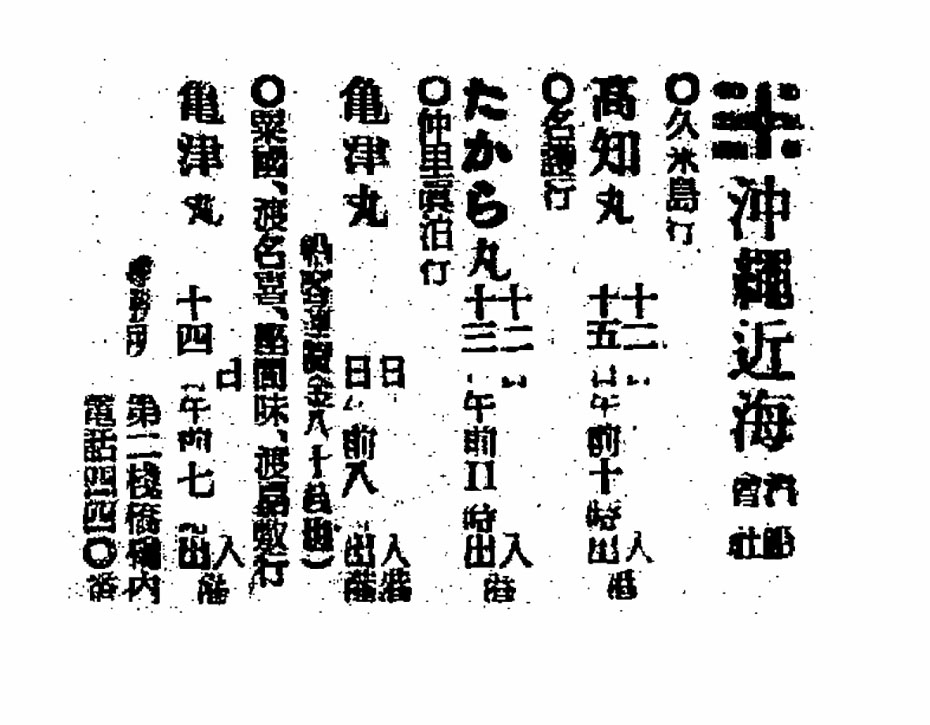 沖縄近海汽船會社
〇久米島行
高知丸 十二日入港
十五日午前十時出港
〇名護行
たから丸 十二日入港
十三日午前 時出港
〇仲里眞泊行
亀津丸 日入港
日 前八 出港
船客運賃金八十錢
〇粟國、渡名喜、座間味、渡嘉敷行
亀津丸 日入港
十四日午前七 出港
第二棧橋構内
電話四四〇番